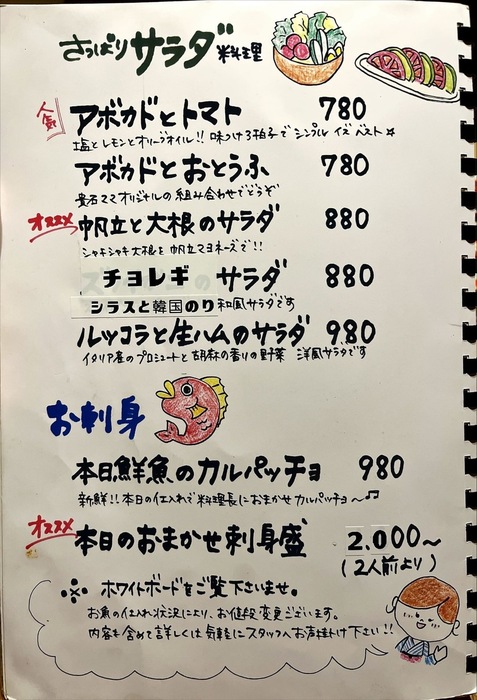 さっぱりサラダ料理
人気 アボカドとトマト 780
塩とレモンとオリーブオイル!! 味つけ3拍子で シンプル イズ ベスト☆
アボカドとおとうふ 780
貴石ママオリジナルの組み合わせでどうぞ
オススメ 帆立と大根のサラダ 880
シャキシャキ大根を 帆立マヨネーズで!!
チョレギ サラダ 880
シラスと韓国のり 和風サラダです
ルッコラと生ハムのサラダ 980
イタリア産のプロシュートと胡麻の香りの野菜 洋風サラダです
お刺身
本日鮮魚のカルパッチョ 980
新鮮!!本日の仕入れで料理長におまかせカルパッチョ〜♫
オススメ 本日のおまかせ刺身盛 2.000〜
(2人前より)
※ ホワイトボードをご覧下さいませ。
お魚の仕入れ状況により、お値段変更ございます。
内容も含めて詳しくは気軽にスタッフへお声掛け下さい!!